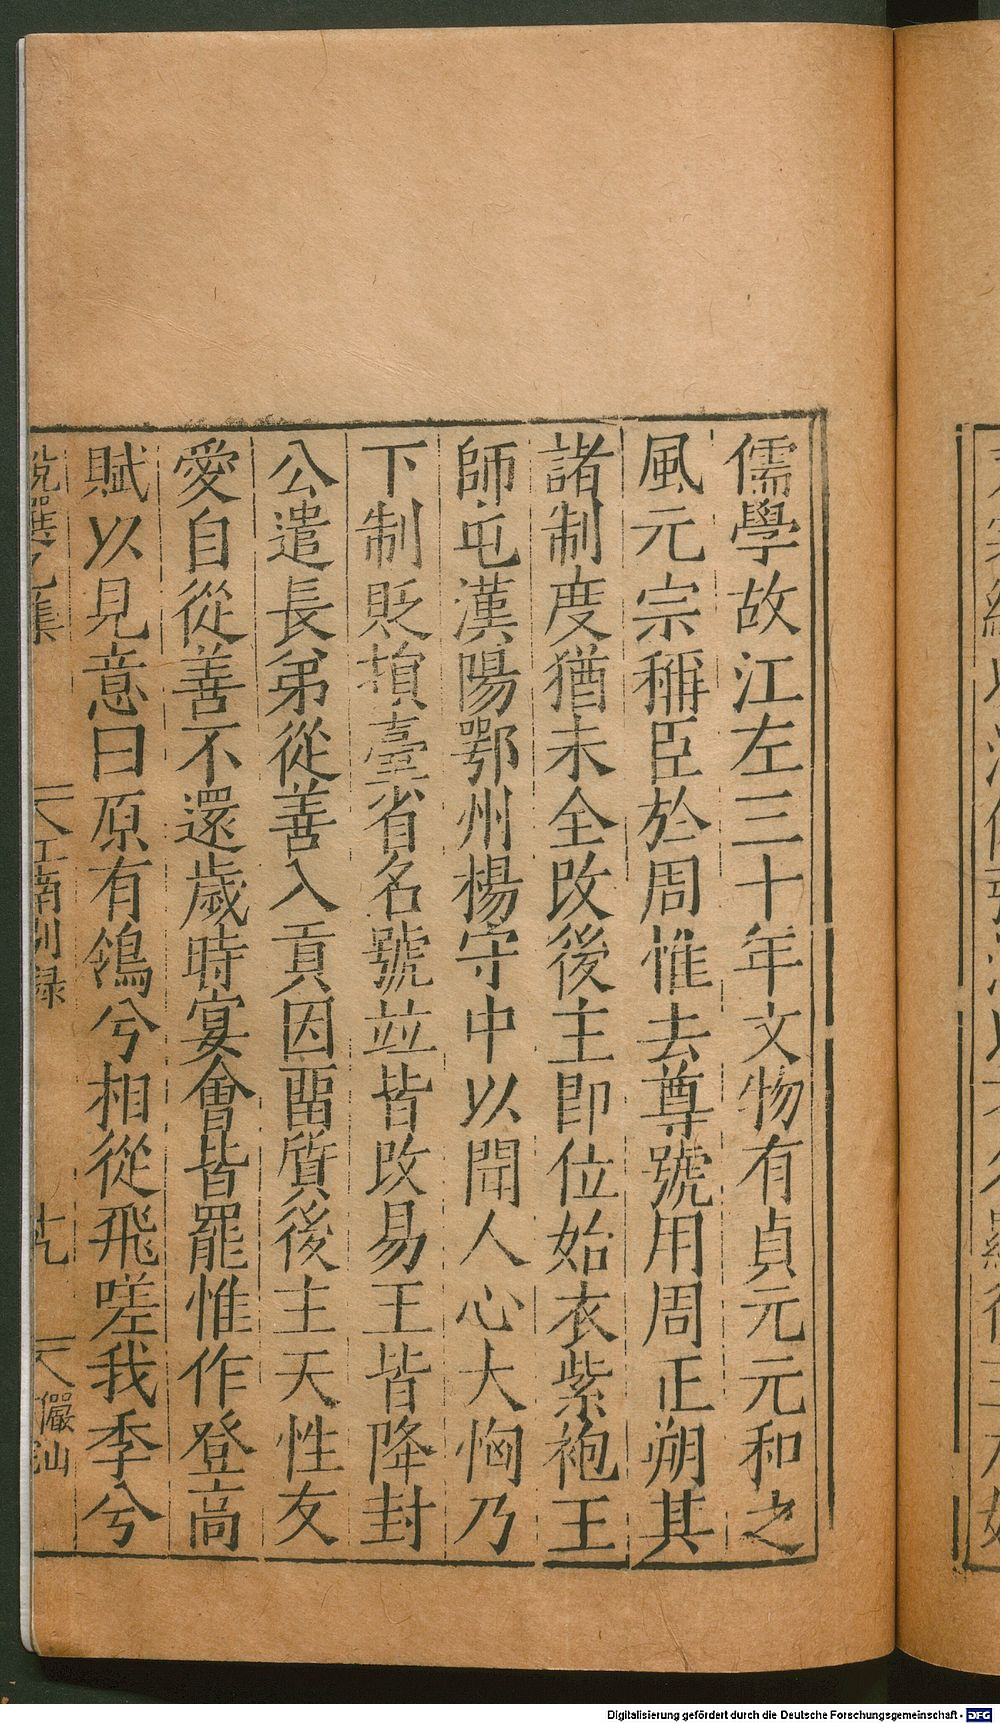 儒學故江左三十年文物有貞元元和之
風元宗稱臣於周惟去尊號用周正朔其
諸制度猶未全改後主即位始衣紫袍王
師屯漢陽鄂州楊守中以聞人心大恟乃
下制貶損臺省名號並皆改易王皆降封
公遣長弟從善入貢因畱質後主天性友
愛自從善不還歲時宴會皆罷惟作登高
賦以見意曰原有鴒兮相從飛嗟我季兮
說選乙集 江南別録 十九 儼山
Digitalisierung gefördert durch die Deutsche Forschungsgemeinschaft - DFG